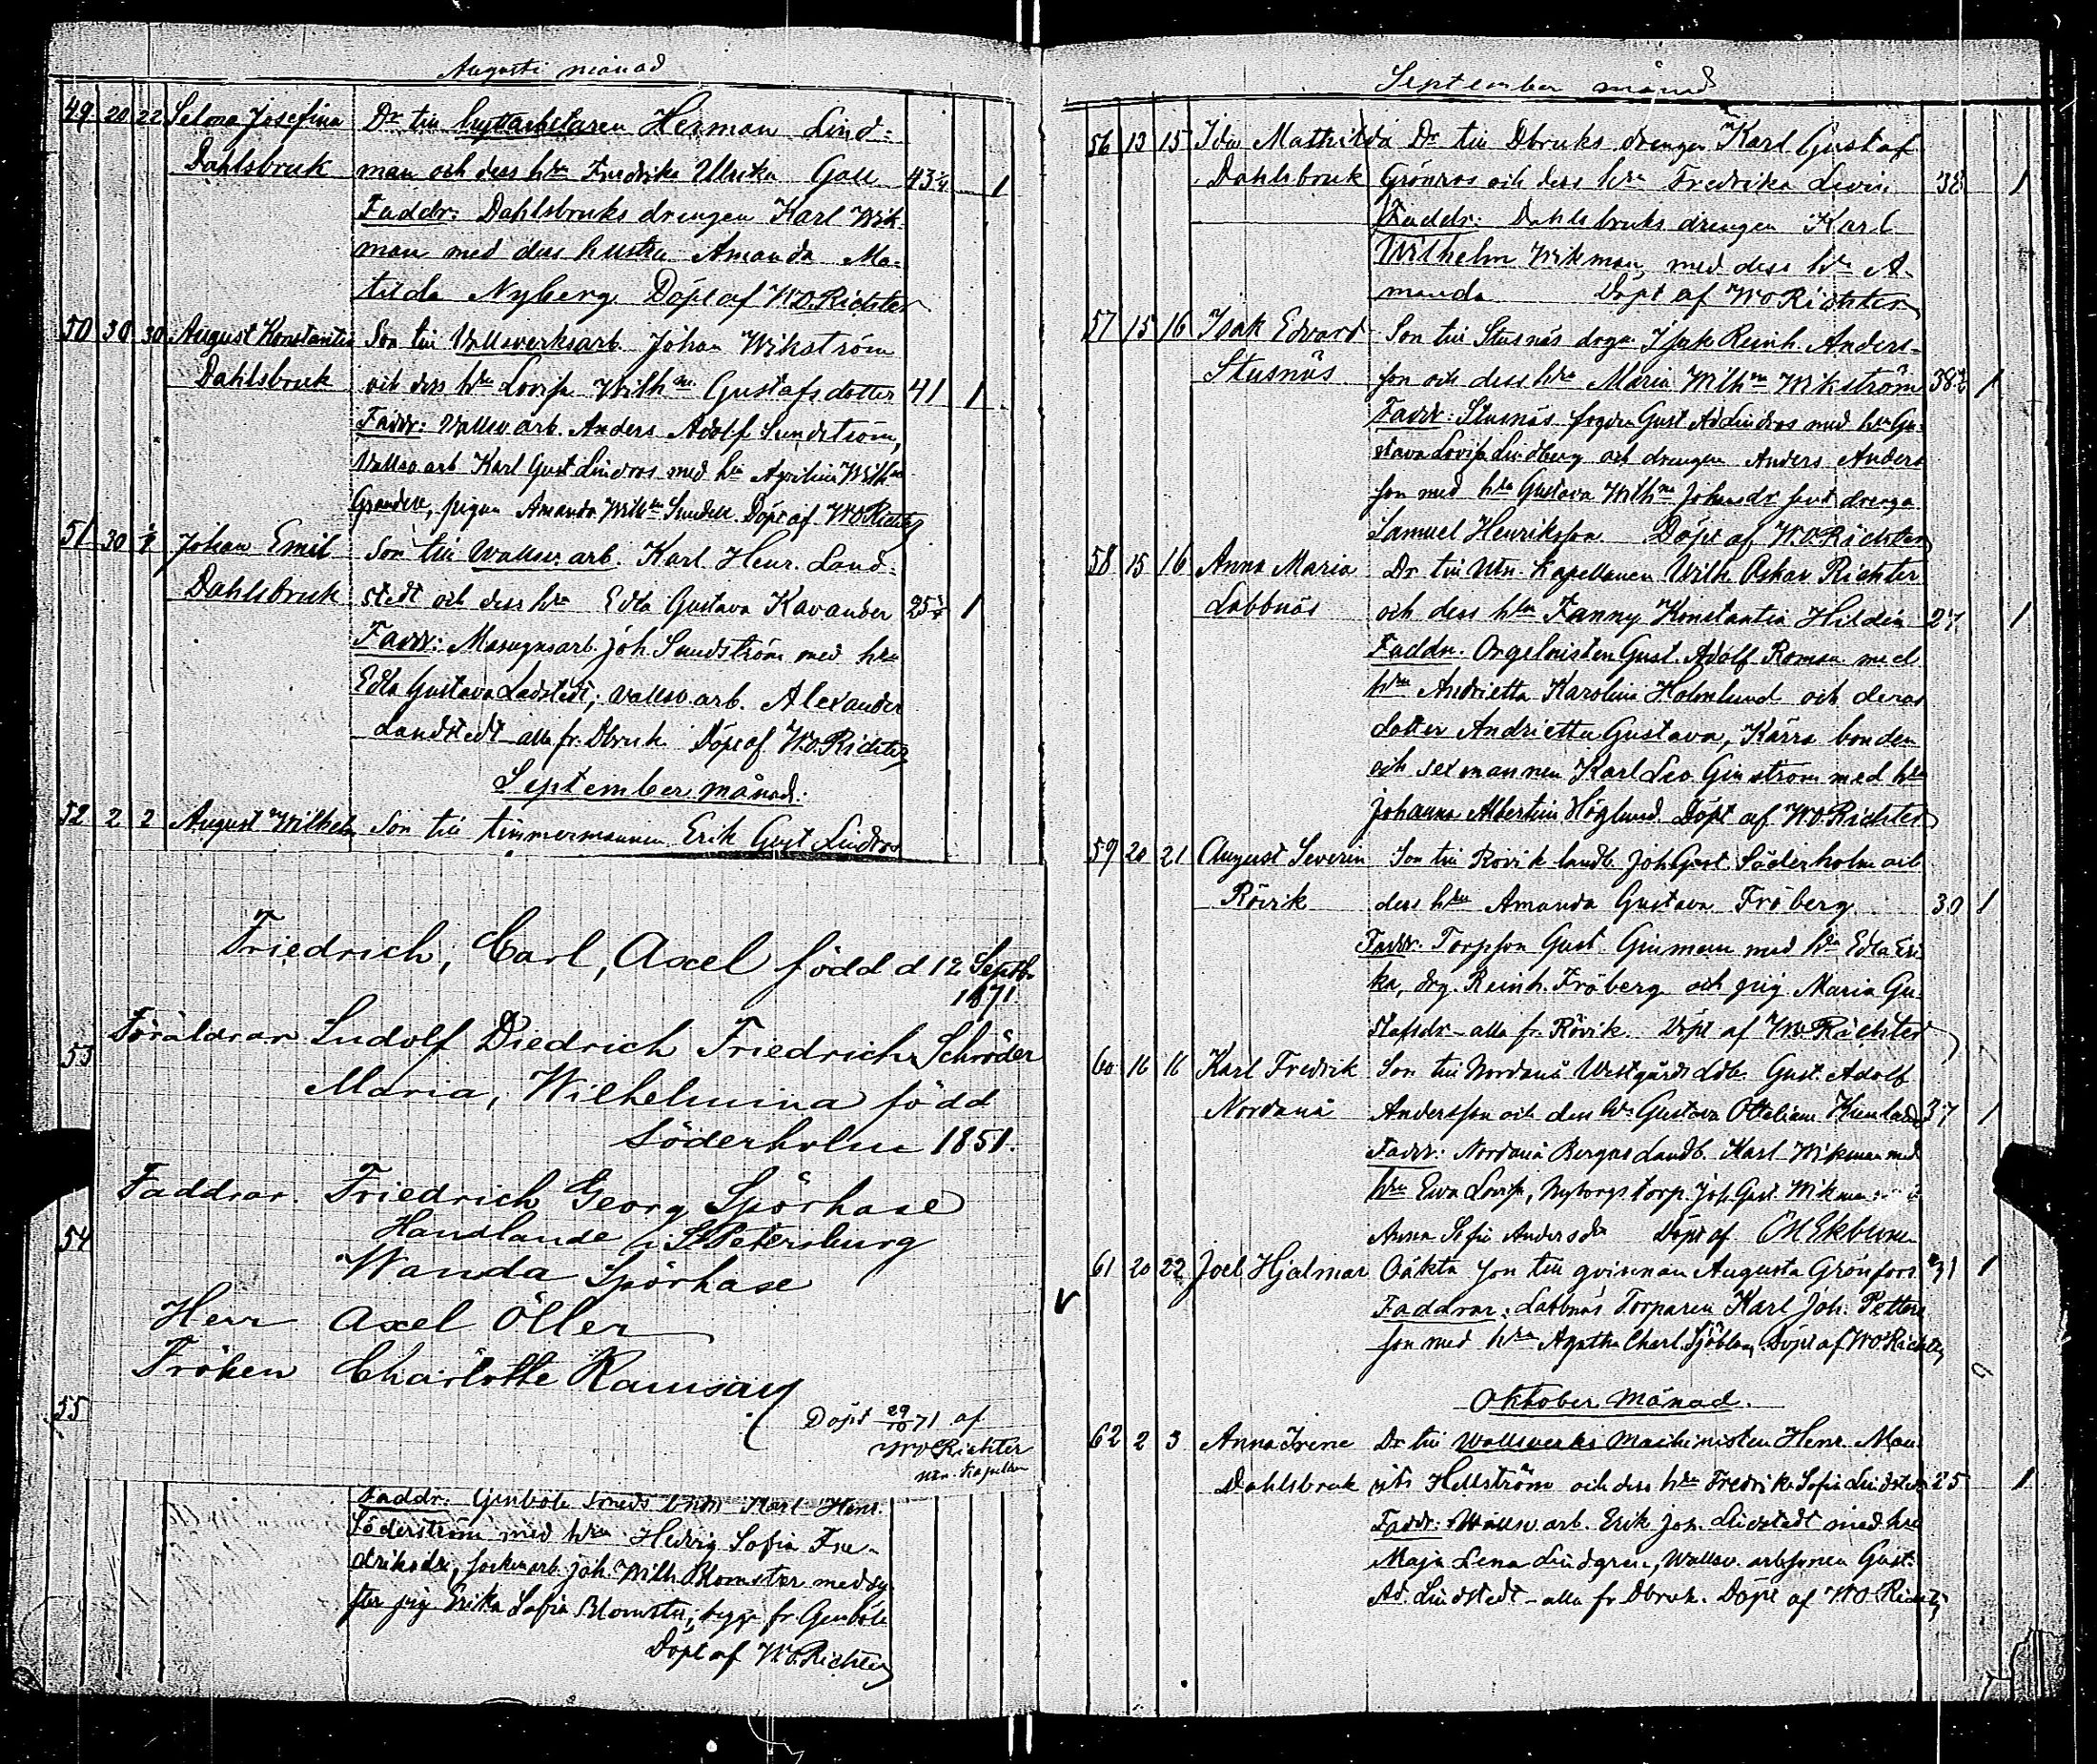 Augusti månad
49 20 22 Selma Josefina Dr till hyttarbetaren Herman Lind=
Dahlsbruk man och dess hru Fredrika Ulrika Gall 43 1/4 1
Faddr: Dahlsbruks drengen Karl Wik-
man med dess hustru Amanda Ma-
tilda Nyberg. Döpt af W.O. Richter
50 30 30 August Konstantin Son till Vallsverksarb. Johan Wikström
Dahlsbruk och dess hru Lovisa Wilhna Gustafsdotter 41 1
Faddr: Vallsv arb. Anders Adolf Sundström,
Vallsv arb Karl Gust Lindros med hru Wilhna
pigan Amanda Wilhna Döpt af WO Richter
51 30 Johan Emil Son till Wallsv. arb. Karl Henr. Land-
Dahlsbruk stedt och dess hru Edla Gustava Kavander 25 1
Faddr: Masugnsarb. Joh. Sundström med hru
Edla Gustava Ladstedt; vallsv. arb. Alexander
Landstedt alla fr. Dbruk. Döpt af W.O. Richter
September månad:
52 2 2 August Wilhelm Son till timmermannen Erik Gust Lindros
Friedrich, Carl, Axel född d 12 Septbr
1871
53 Föräldrar Ludolf Diedrich Friedrich Schröder
Maria, Wilhelmina född
Söderholm 1851.
Faddrar. Friedrich Georg Spörhase
54 Handlande i St Petersburg
Wanda Spörhase
Herr Axel Öller
Fröken Charlotte Ramsay
55 Döpt 29/10 71 af
WO Richter
Faddr: Genböle smeds Karl Henr.
Söderström med hru Hedvig Sofia Fre-
driksdr, sockenarb. Joh. Wilh Blomster med sy-
ster pig. Erika Sofia Blomster, begge fr Genböle
Döpt af W.O. Richter
September månad
56 13 15 Ida Mathilda Dr till Dbruks drengen Karl Gustaf
Dahlsbruk Grönros och dess hru Fredrika Levin 38 1
Faddr: Dahlsbruks drengen Karl
Wilhelm Wikman med dess hru A-
manda Döpt af W O Richter
57 15 16 Isak Edvard Son till Stusnäs Isak Reinh. Anders-
Stusnäs son och dess hru Maria Wilhna Wikström 38 1/2 1
Faddr: Stusnäs Gust Ad Lindros med hru Gu-
stava Lovisa Lindberg och drengen Anders Anders
son med hru Gustava Wilhna Johansdr samt drenge
Samuel Henriksson Döpt af W.O. Richter
58 15 16 Anna Maria Dr till Kapellanen Wilh Oskar Richter
Labbnäs och dess hru Fanny Konstantia Hildén 27 1
Faddr. Orgelnisten Gust. Adolf Roman med
hru Andrietta Karolina Holmlund och deras
dotter Andrietta Gustava, Kärra bonden
och sexmannen Karl Leo Ginström med hru
Johanna Albertina Höglund. Döpt af WO Richter
59 20 21 August Severin Son till Rövik landb. Joh Gust. Söderholm och
Rövik dess hru Amanda Gustava Fröberg 30 1
Faddr. Torpson Gust. Ginman med hru Edla Eri-
ka, drg. Reinh. Fröberg och pig Maria Gu-
stafsdr - alla fr. Rövik. Döpt af W.O. Richter
60 16 16 Karl Fredrik Son till Nordanå Westgårds Gust. Adolf
Nordanå Andersson och dess hru Gustava Ottiliana 37 1
Faddr: Nordanå Bergas Landb. Karl Wikman med
hru Eva Lovisa, Nyborgs torp. Joh. Gust. Wikman
Anna Sofia Andersdr Döpt af
61 20 22 Joel Hjalmar Oäkta son till qvinnan Augusta Grönfors 31 1
v Faddrar: Labbnäs Torparen Karl Joh. Petters
son med hru Agatha Charl. Sjöblom Döpt af WO Richter
Oktober Månad.
62 2 3 Anna Irene Dr till Wallsverks Machinisten Henr. Mau-
Dahlsbruk rits Hellström och dess hru Fredrika Sofia Lindstedt 25 1
Faddr: Wallsv. arb. Erik Joh. Lindstedt med hru
Maja Lena Lindgren, Wallsv. arbsonen Gust.
Ad. Lindstedt - alla fr Dbruk. Döpt af WO Richter